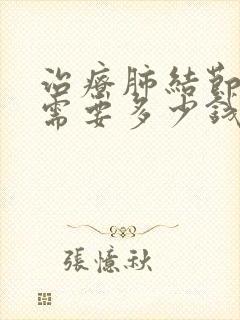 治療肺結節
需要多少錢
張憶秋